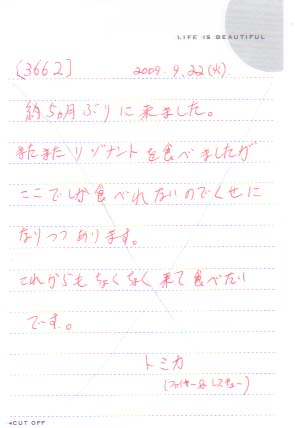 LIFE IS BEAUTIFUL
[3662] 2009.9.22(火)
約5ヵ月ぶりに来ました。
またまたリゾナントを食べましたが
ここでしか食べれないのでくせに
なりつつあります。
これからもちょくちょく来て食べたい
です。
トミカ
◂CUT OFF